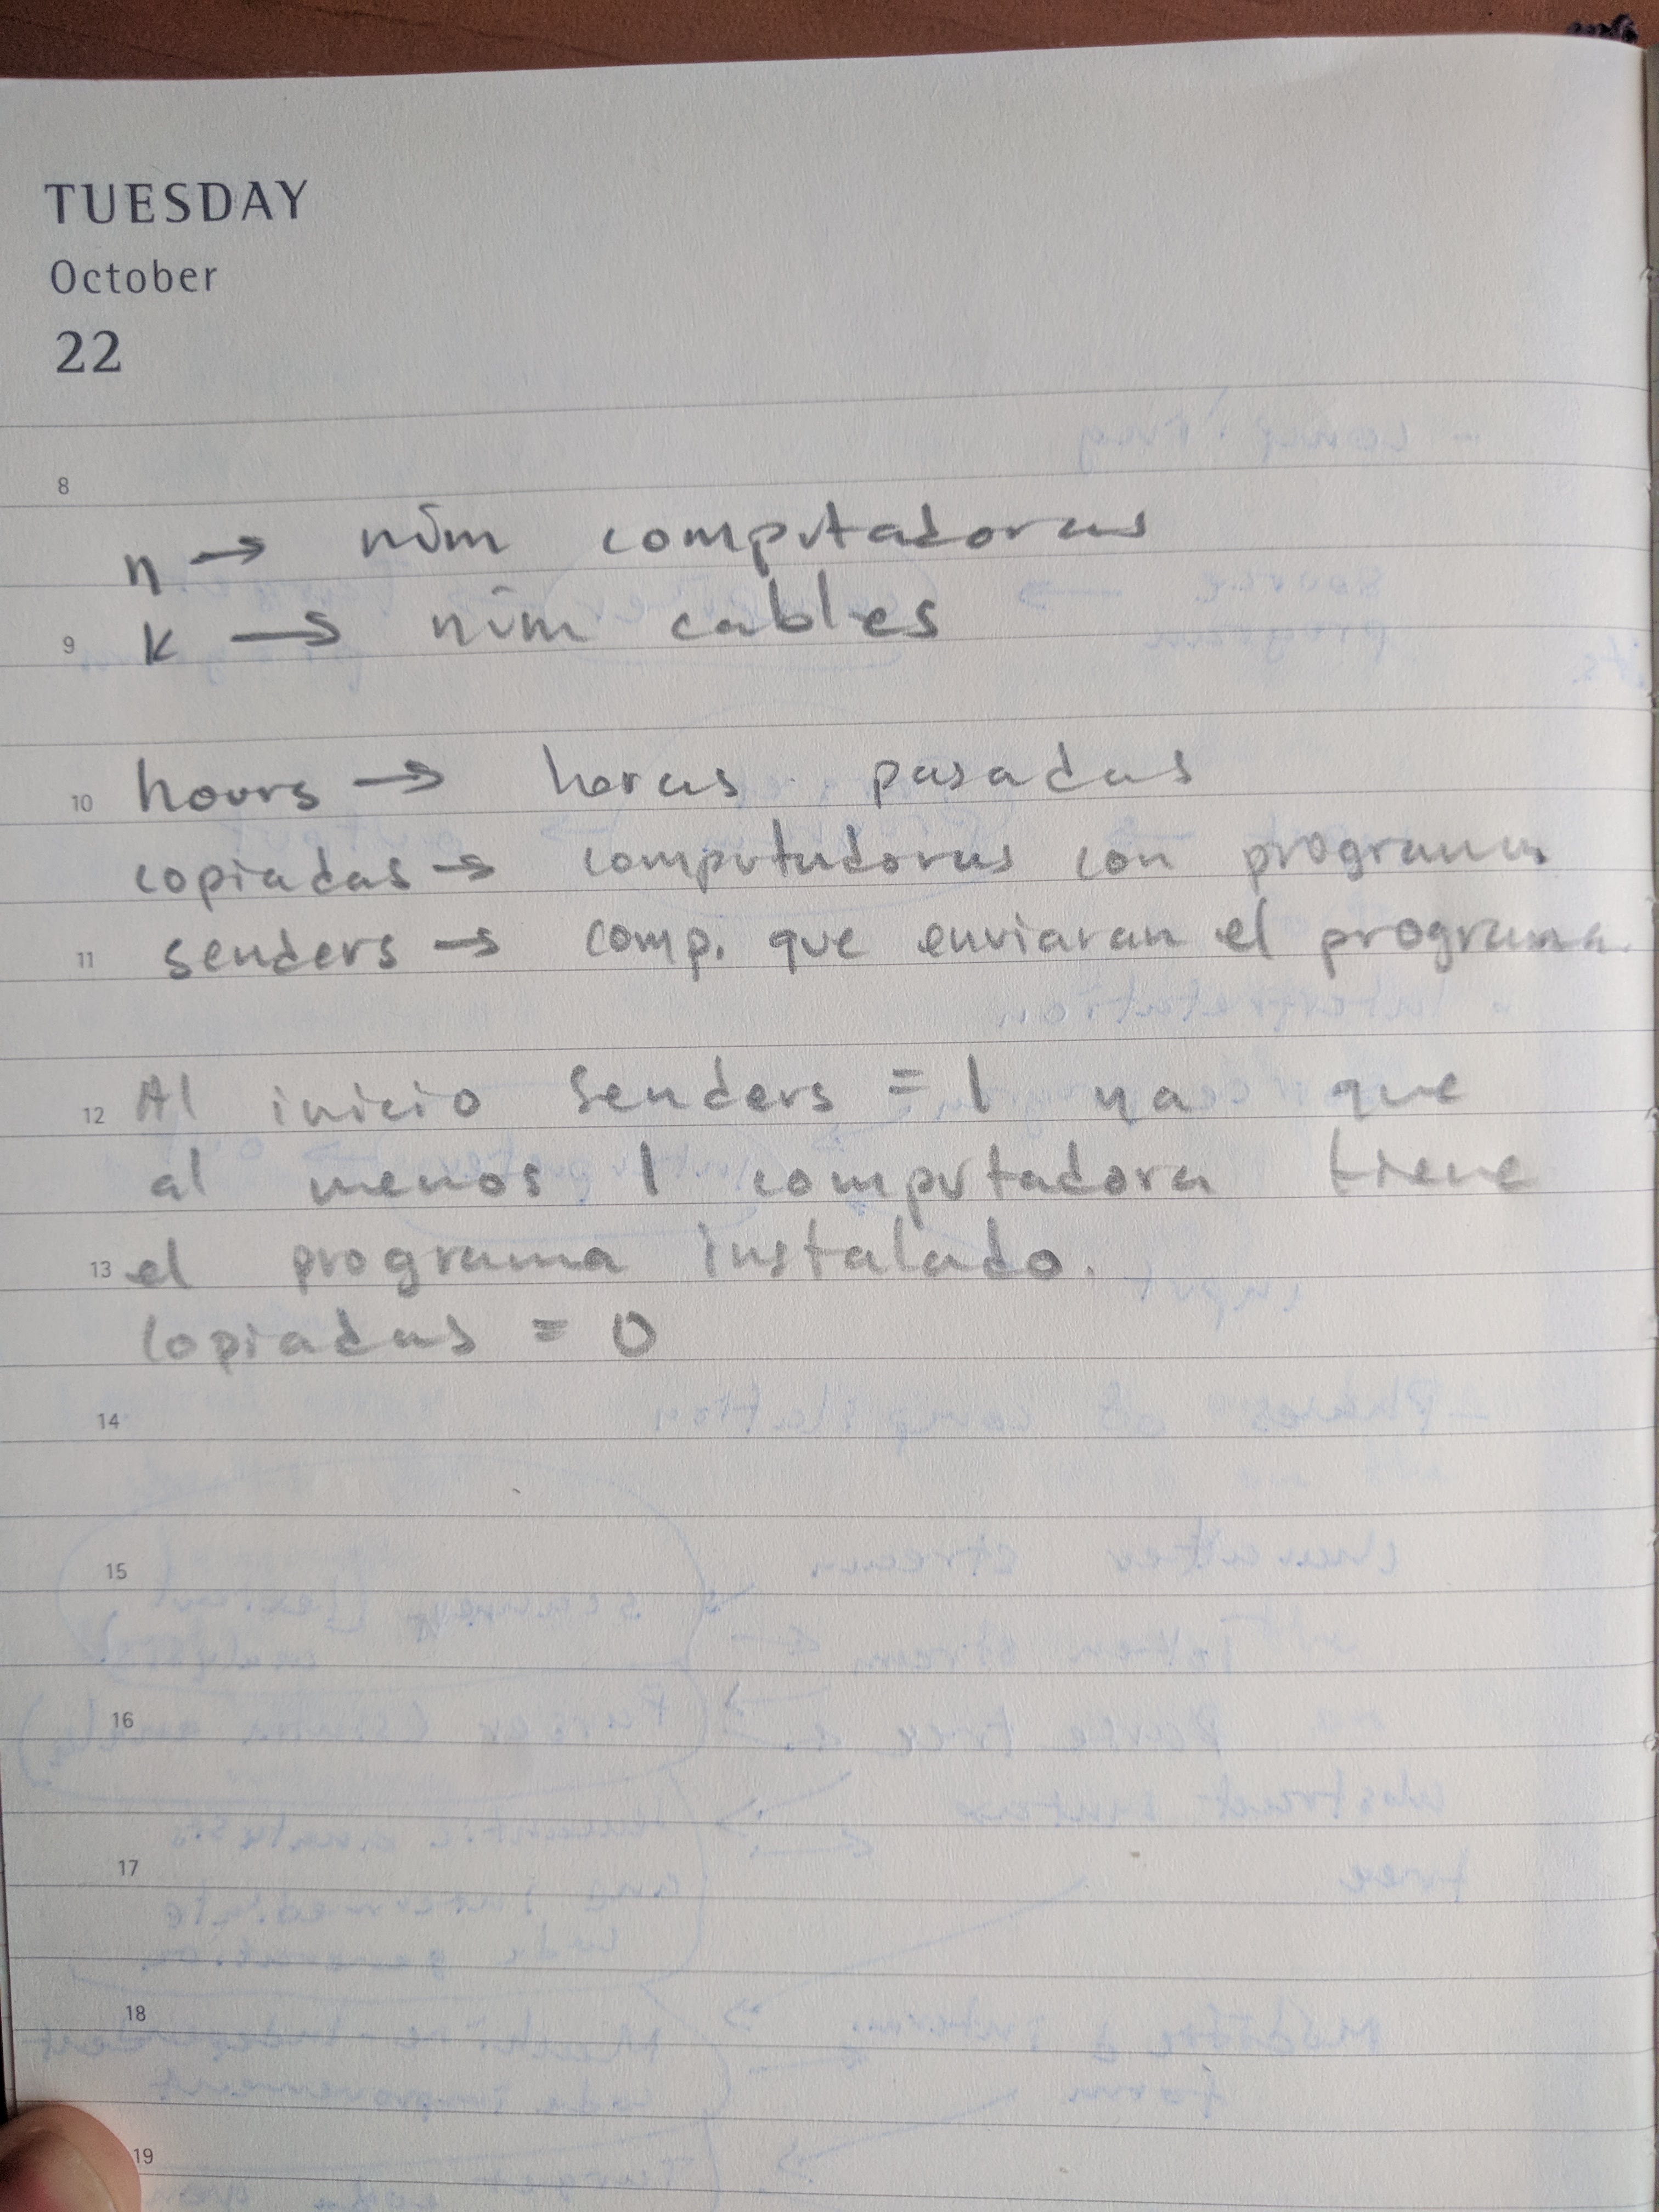 TUESDAY
October
22
8
n → núm computadoras
9 k → núm cables
10 hours → horas pasadas
copiadas → computadoras con programa
11 senders → comp. que enviaran el programa.
12 Al inicio senders = 1 ya que
al menos 1 computadora tiene
13 el programa instalado.
copiadas = 0
14
15
16
17
18
19